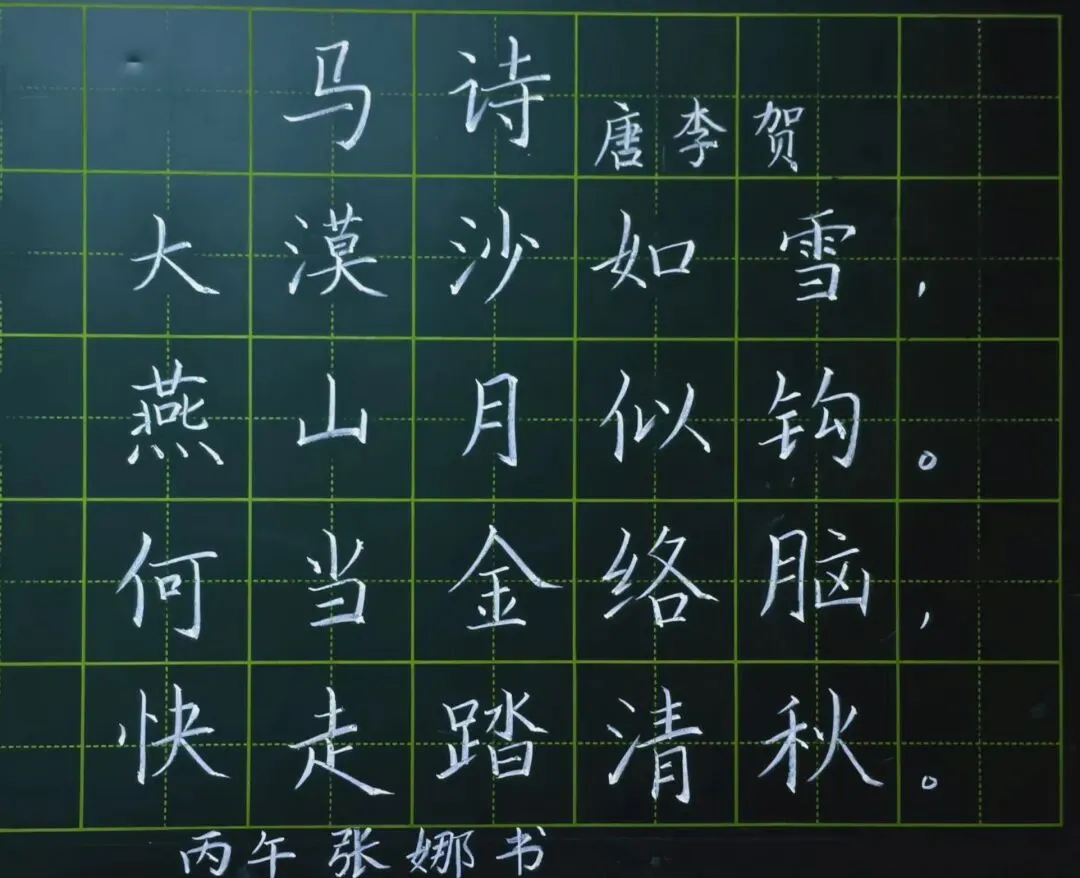 马诗
唐李贺
大漠沙如雪，
燕山月似钩。
何当金络脑，
快走踏清秋。
丙午张娜书